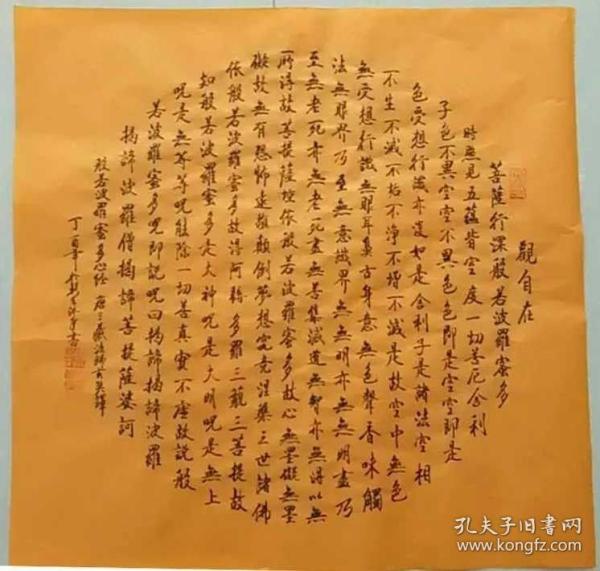 觀自在
菩薩行深般若波羅蜜多
時照見五蘊皆空度一切苦厄舍利
子色不異空空不異色色即是空空即是
色受想行識亦復如是舍利子是諸法空相
不生不滅不垢不淨不增不減是故空中無色
無受想行識無眼耳鼻舌身意無色聲香味觸
法無眼界乃至無意識界無無明亦無無明盡乃
至無老死亦無老死盡無苦集滅道無智亦無得以無
所得故菩提薩埵依般若波羅蜜多故心無罣礙無罣
礙故無有恐怖遠離顛倒夢想究竟涅槃三世諸佛
依般若波羅蜜多故得阿耨多羅三藐三菩提故
知般若波羅蜜多是大神咒是大明咒是無上
咒是無等等咒能除一切苦真實不虛故說般
若波羅蜜多咒即說咒曰揭諦揭諦波羅
揭諦波羅僧揭諦菩提薩婆訶
般若波羅蜜多心經 唐三藏法師玄奘譯
丁酉年
孔夫子旧书网
www.kongfz.com